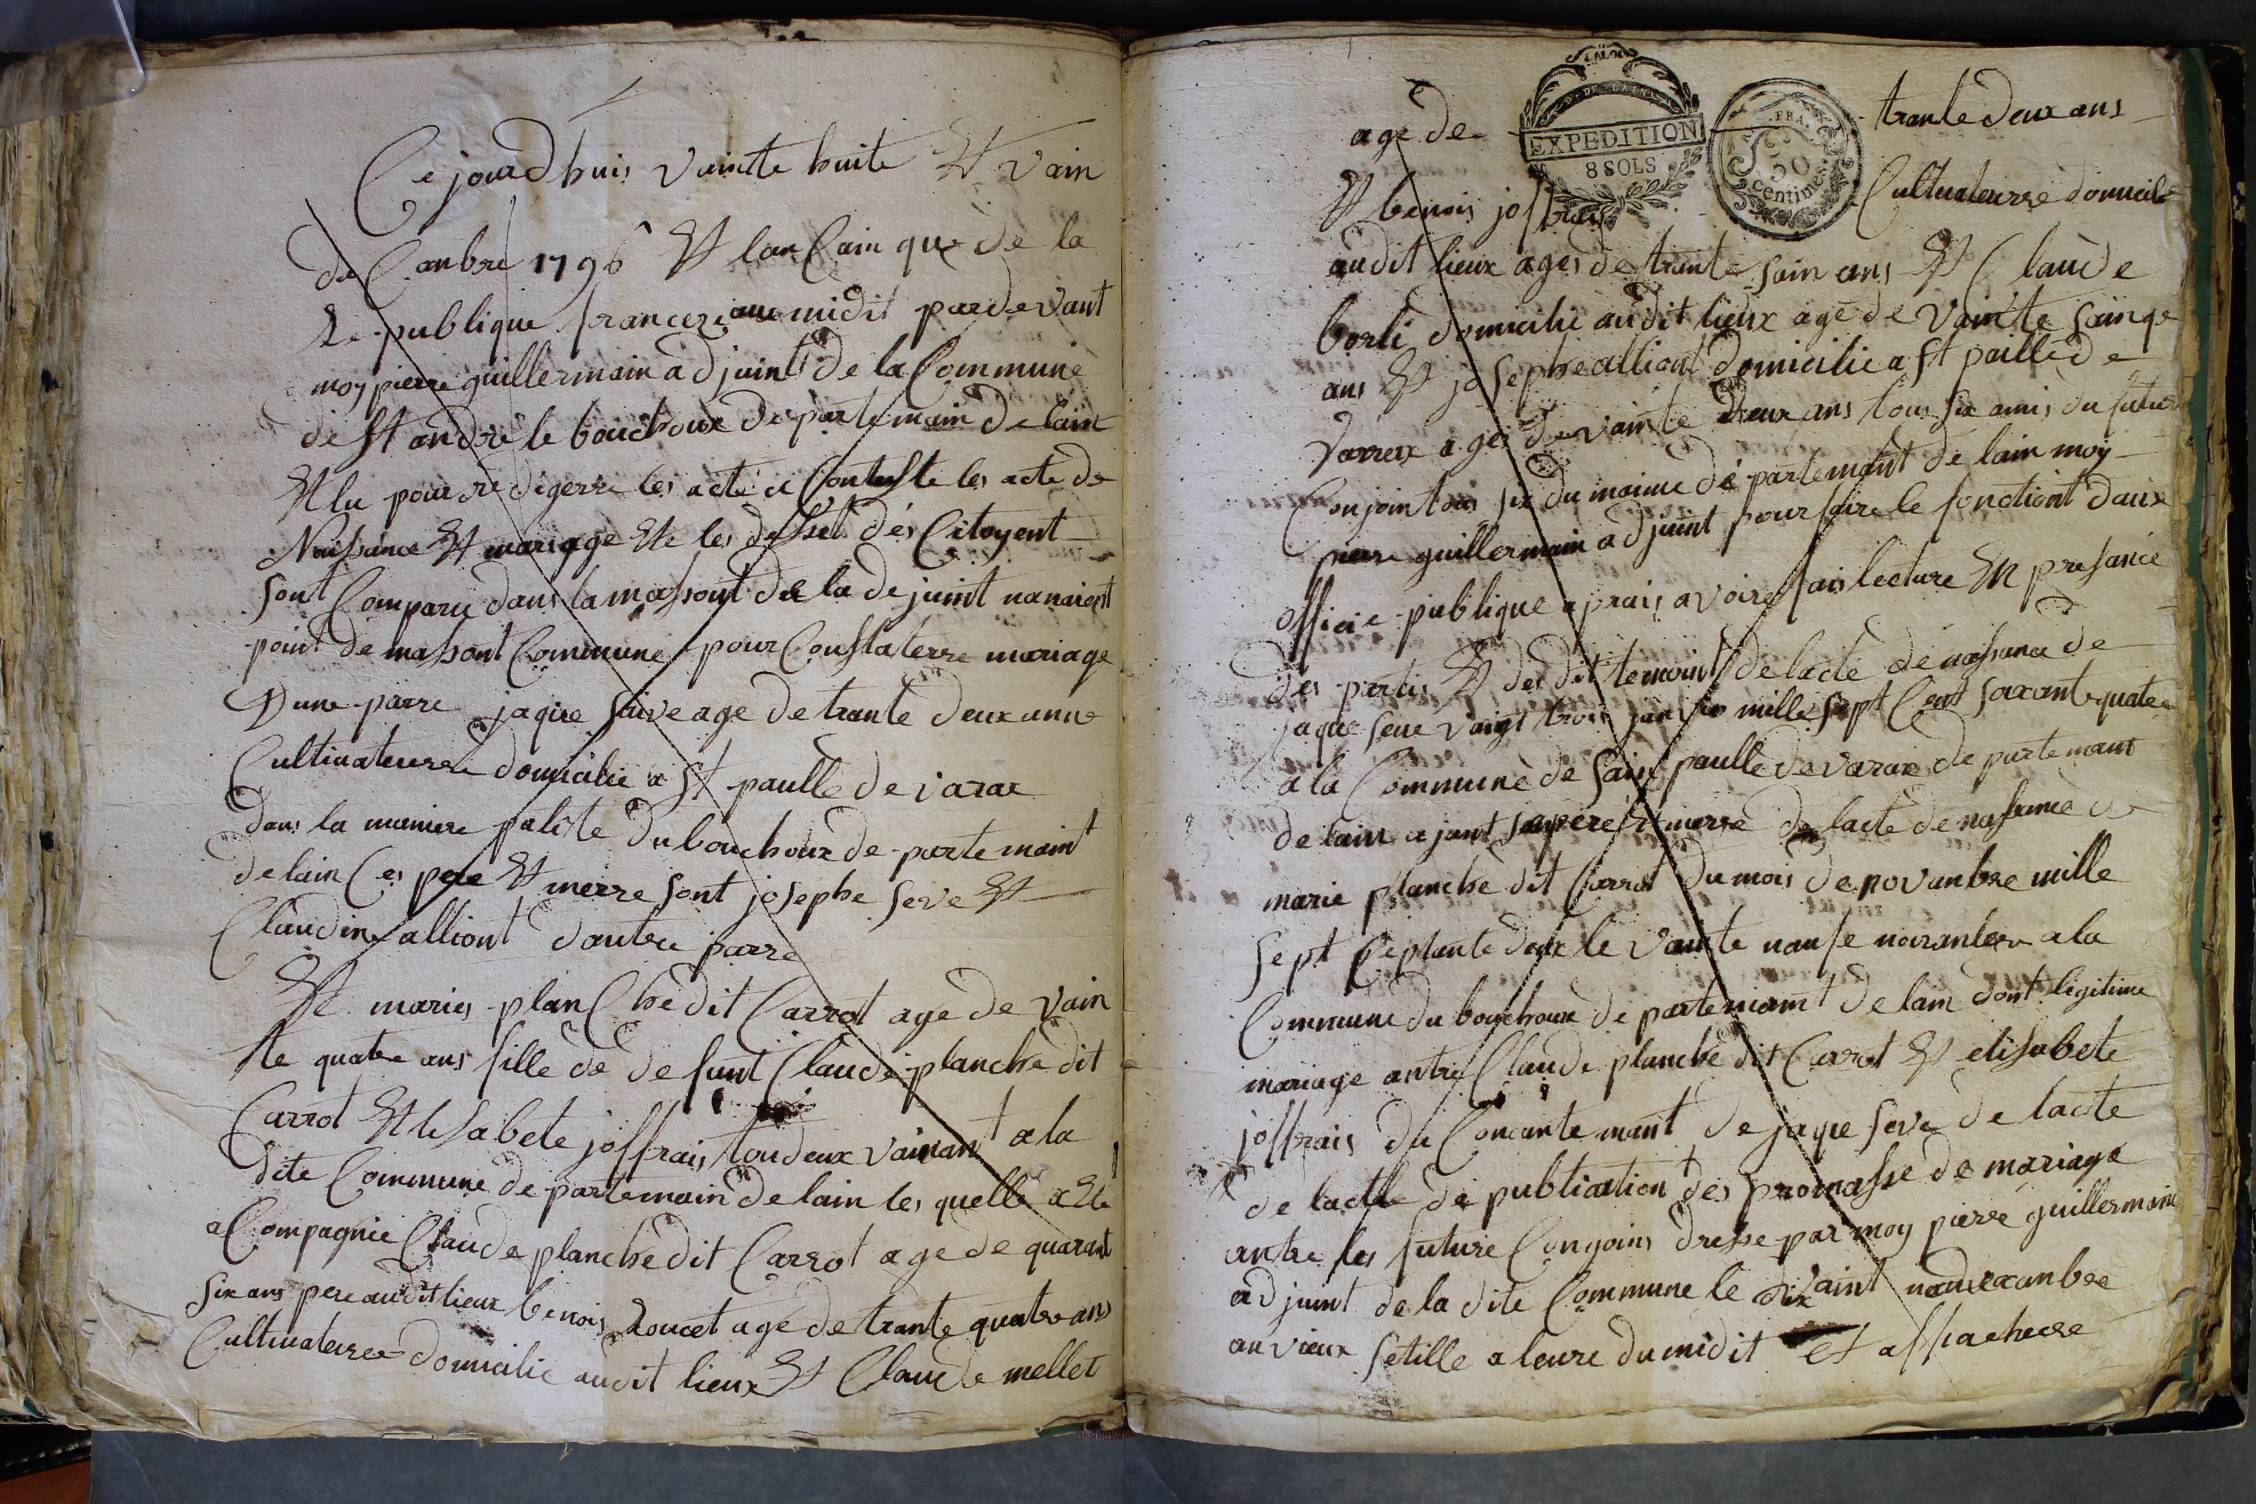 Ce jourd huis vaincte huite Et vain
de Canbre 1796 Et lan Cain que de la
Re publique franceze aure midit par devant
moy pierre guillermain ad juint de la Commune
de St andre le bouchoux de partemain de lain
Et lu pour re digerre les acte a Conteste les acte de
Naisance Et mariage Et les desset des Citoyent
sont Comparu dans la massont de la de juint nanaiont
point de massont Commune pour Constaterre mariage
Dune parre jaque saive age de trante deux anne
Cultivateurre domicilie a St paulle de varax
dans la muniere palite du bouchoux de partemaint
de lain Ces pere Et merre sont josephe seve Et
Claudine alliont dautre parre
Et maries planChe dit Carrot age de vain
te quatre ans fille de de funt Claude planche dit
Carrot Et lisabete joffrais toudeux vaivant a la
dite Commune de partemain de lain les quelle a Ete
a Compagnie Claude planche dit Carrot age de quarant
six ans pere audit lieux benois Roucet age de trante quatre ans
Cultivateurre domicilie audit lieux Et Claude mellet
age de trante deux ans
LALOI
EXPEDITION
8 SOLS
FRA
50
centimes
Et benois joffrais Cultivateurre domicile
audit lieux ages de trante sain ans Et Claude
borli domicilie audit lieux age de vainte sainqe
ans Et josephe alliont domicilie a St paille de
varrex ages de vainte deux ans tous six amis du futur
Conjoin tous six du maime de partemant de lain moy
pierre guillermain ad juint pour faire le fonctiont dauix
officie publique aprais avoire fais lecture En presance
des partis Et des dit temoint de lacte de nassance de
jaque seve vaingt trois janvie mille sept Cent soixant quatre
a la Commune de Saint paulle de varax de partemant
de lain a jant sa pere Et merre de lacte de nassance de
marie planche dit Carrot du mois de novanbre mille
sept septante deux le vainte nause novanbre a la
Commune du bouchoux de partemant de lain dont legitime
mariage antre Claude planche dit Carrot Et elisabete
joffrais du Concante mant de jaque seve de lacte
de lacte de publication des promasse de mariage
antre les future Congoins dresse par moy pierre guillermain
ad juint de la dite Commune le dix vaint novaxanbre
au vieux setille a leure du midit et affiacherre